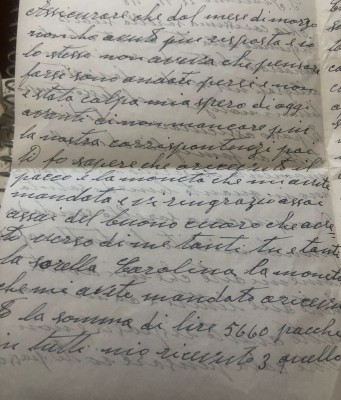 assicurare che dal mese di marzo
non ho avuto più risposta e io
lo stesso non aveva che pensare
forse sono andati persi e non
è stata colpa mia spero di oggi
avanti di non mancare più
la nostra corrispondenza poi
ti fo sapere che o ricevuto il
pacco e la moneta che mi avete
mandata e vi ringrazio assai
assai del buono cuore che avete
tu verso di me tanti tu e tanti
la sorella Carolina la moneta
che mi avete mandato o ricevuto
la somma di lire 5660 pacche
in tutti mio ricevuto 3 quello